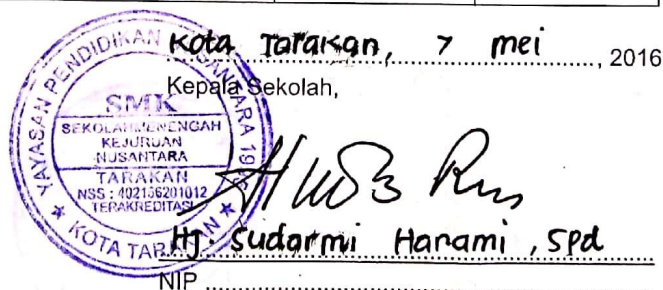 Kota Tarakan, 7 mei, 2016
Kepala Sekolah,
YAYASAN PENDIDIKAN NUSANTARA
SMK
SEKOLAH MENENGAH
KEJURUAN
NUSANTARA
TARAKAN
NSS : 402166201012
TERAKREDITASI
KOTA TARAKAN
Hj. Sudarmi Hanami, Spd
NIP